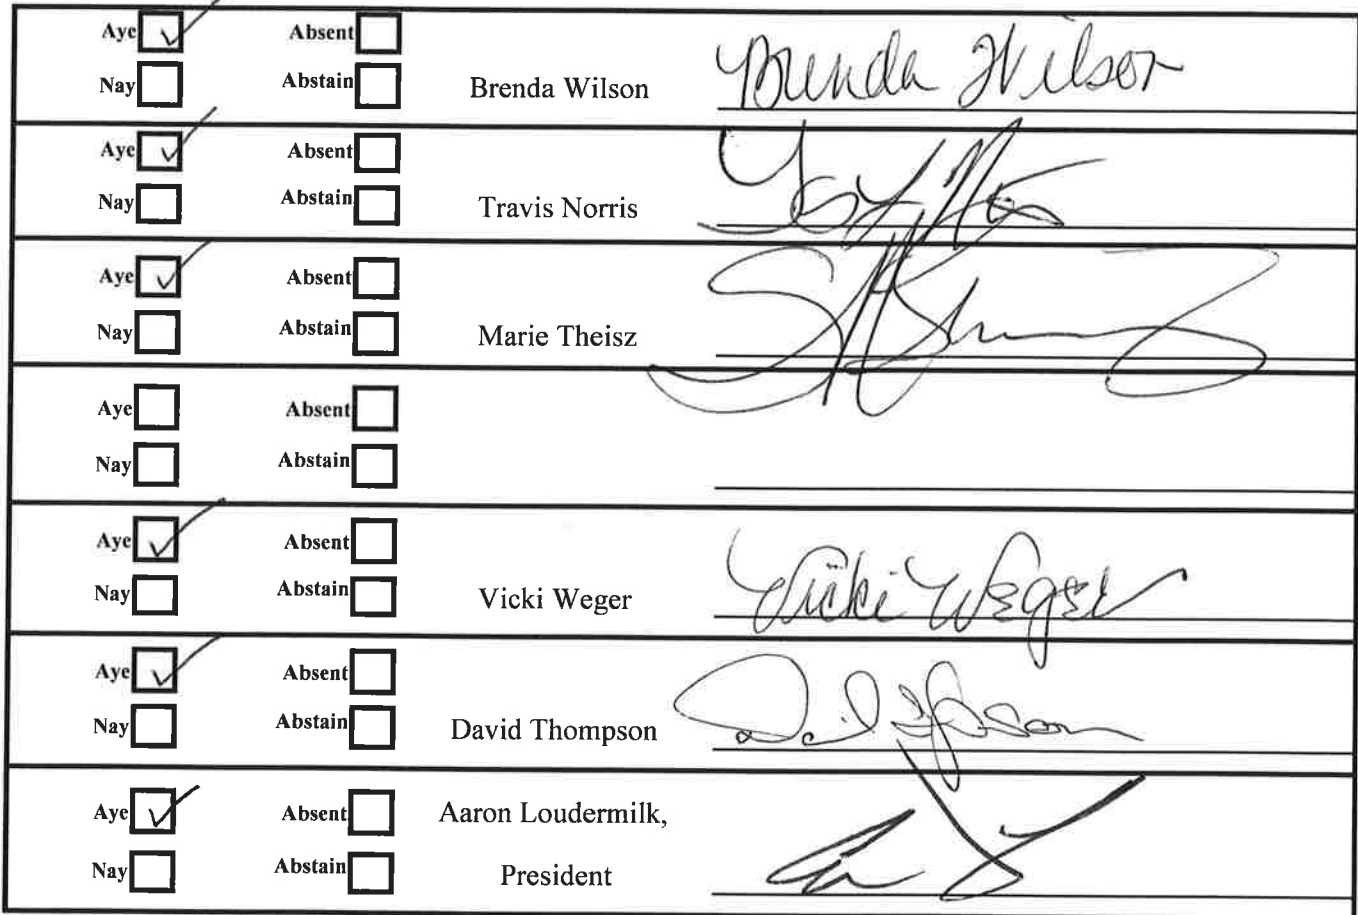 Aye Absent
Nay Abstain Brenda Wilson Brenda Wilson
Aye Absent
Nay Abstain Travis Norris
Aye Absent
Nay Abstain Marie Theisz
Aye Absent
Nay Abstain
Aye Absent
Nay Abstain Vicki Weger Vicki Weger
Aye Absent
Nay Abstain David Thompson
Aye Absent Aaron Loudermilk,
Nay Abstain President